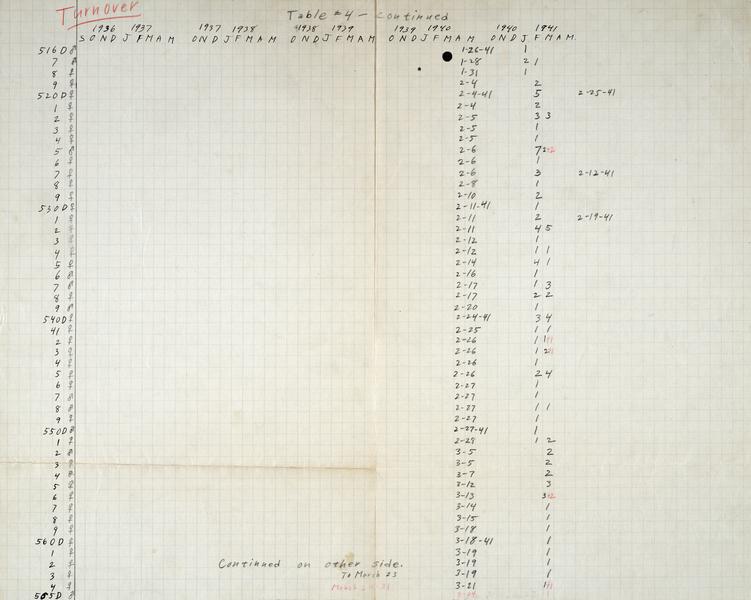 Turnover
Table #4 - Continued
1936 1937 1937 1938 1938 1939 1939 1940 1940 1941
S O N D J F M A M O N D J F M A M O N D J F M A M O N D J F M A M O N D J F M A M.
516D 1-26-41 1
7 1-28 2 1
8 1-31 1
9 2-4 2
520D 2-4-41 5 2-25-41
1 2-4 2
2 2-5 3 3
3 2-5 1
4 2-5 1
5 2-6 7
6 2-6 1
7 2-6 3 2-12-41
8 2-8 1
9 2-10 2
530D 2-11-41 1
1 2-11 2 2-19-41
2 2-11 4 5
3 2-12 1
4 2-12 1 1
5 2-14 4 1
6 2-16 1
7 2-17 1 3
8 2-17 2 2
9 2-20 1
540D 2-24-41 3 4
41 2-25 1 1
2 2-26 1 1
3 2-26 1 2
4 2-26 1
5 2-26 2 4
6 2-27 1
7 2-27 1
8 2-27 1 1
9 2-27 1
550D 2-27-41 1
1 2-28 1 2
2 3-5 2
3 3-5 2
4 3-7 2
5 3-12 3
6 3-13 3+2
7 3-14 1
8 3-15 1
9 3-18 1
560D 3-18-41 1
1 3-19 1
2 Continued on other side. 3-19 1
3 To March 23 3-19 1
4 3-21 1
565D